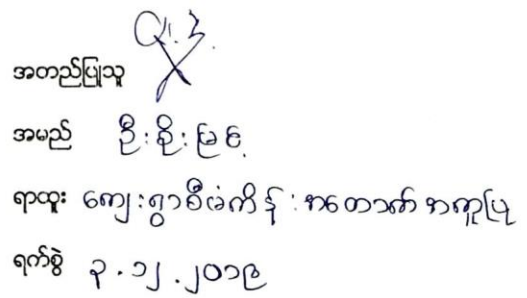 အတည်ပြုသူ
အမည် ဦးစိုးမြင့်
ရာထူး ကျေးရွာစီမံကိန်းအထောက်အကူပြု
ရက်စွဲ ၃.၁၂.၂၀၁၉